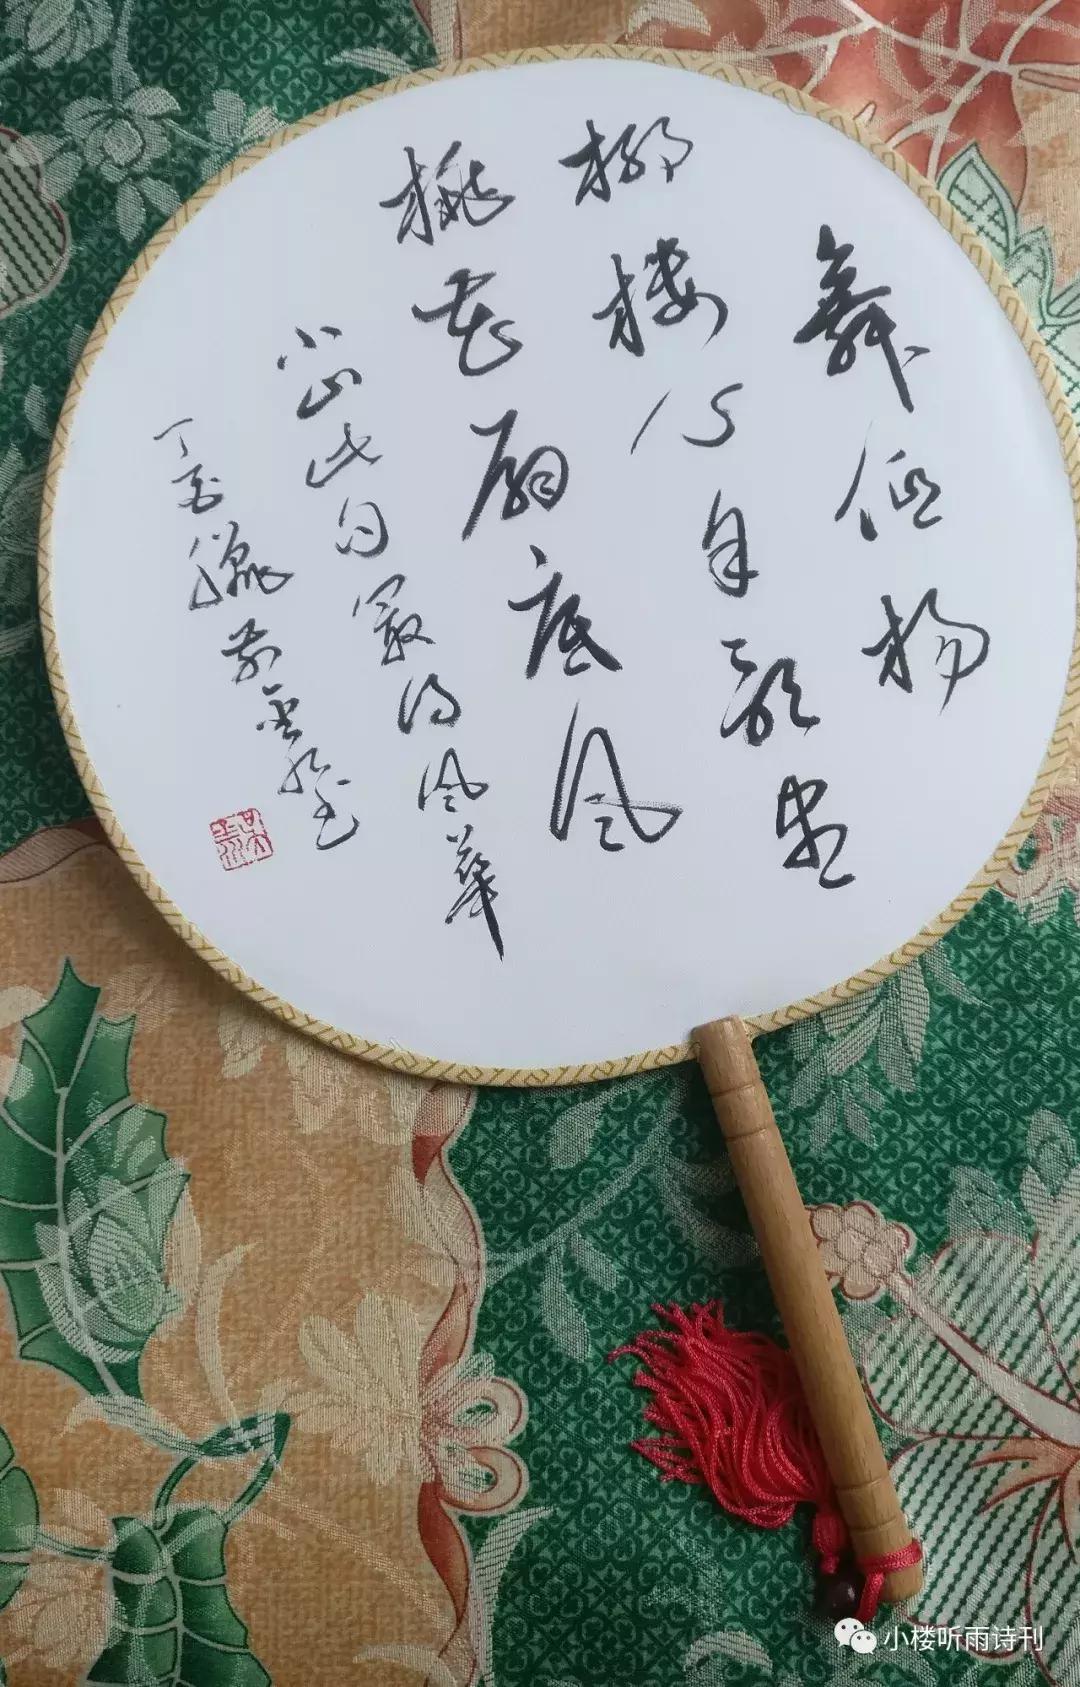 舞低杨
柳楼心月歌尽
桃花扇底风
小山此句最得风華
丁酉
小楼听雨诗刊